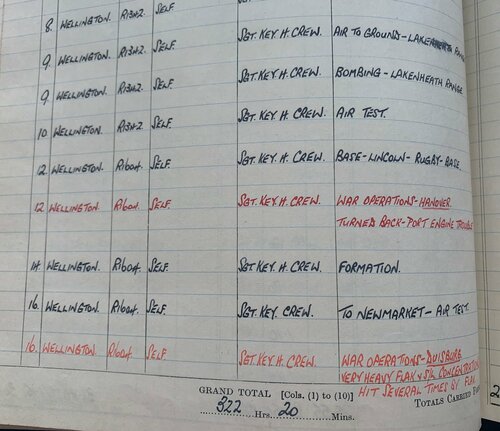 8. WELLINGTON. R1342. SELF SGT. KEY. H. CREW. AIR TO GROUND - LAKENHEATH RANGE
9. WELLINGTON. R1342. SELF. SGT. KEY. H. CREW. BOMBING - LAKENHEATH RANGE
9. WELLINGTON. R1342. SELF. SGT. KEY. H. CREW. AIR TEST.
10. WELLINGTON. R1342. SELF. SGT. KEY H. CREW. BASE - LINCOLN - RUGBY - BASE.
12. WELLINGTON. R1604. SELF.
12 WELLINGTON. R1604. SELF SGT. KEY. H. CREW. WAR OPERATIONS - HANOVER.
TURNED BACK - PORT ENGINE TROUBLE
14. WELLINGTON. R1604. SELF. SGT. KEY H. CREW. FORMATION.
16. WELLINGTON. R1604. SELF. SGT. KEY. CREW. TO NEWMARKET - AIR TEST.
16. WELLINGTON. R1604. SELF SGT. KEY H. CREW. WAR OPERATIONS - DUISBURG
VERY HEAVY FLAK & S/L CONCENTRATION
HIT SEVERAL TIMES BY FLAK.
GRAND TOTAL [Cols. (1) to (10)]
322 Hrs. 20 Mins.
TOTALS CARRIED
2